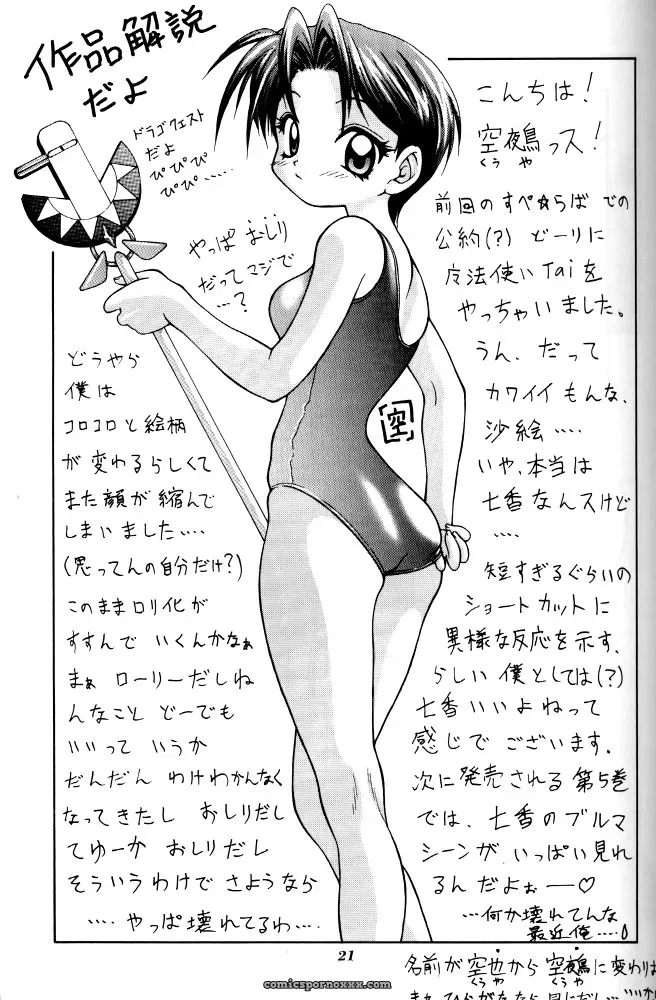 作品解説
だよ
ドラゴクエスト
だよ
ぴぴぴ
ぴぴ.....
やっぱ おしり
だってマジで
...?
こんちは!
空鵺っス!
くう や
前回のすぺ☆らば での
公約(?) どーりに
魔法使いTaiを
やっちゃいました。
うん、だって
カワイイもんな、
沙絵....
いや、本当は
七香なんスけど
....
短すぎるぐらいの
ショートカットに
異様な反応を示す、
らしい 僕としては(?)
七香いいよねって
感じで ございます。
次に発売される 第5巻
では、七香のブルマ
シーンが いっぱい見れ
るんだよぉ──♡
...何か壊れてんな
最近俺....
空
どうやら
僕は
コロコロと絵柄
が変わるらしくて
また顔が縮んで
しまいました....
(思ってんの自分だけ?)
このままロリ化が
すすんで いくんかなぁ
まぁ ローリーだしね
んなこと どーでも
いいって いうか
だんだん わけわかんなく
なってきたし おしりだし
てゆーか おしりだし
そういうわけで さようなら
....やっぱ壊れてるわ....
21
名前が空也から空鵺に変わりま
くうや くうや
comicspornoxxx.com